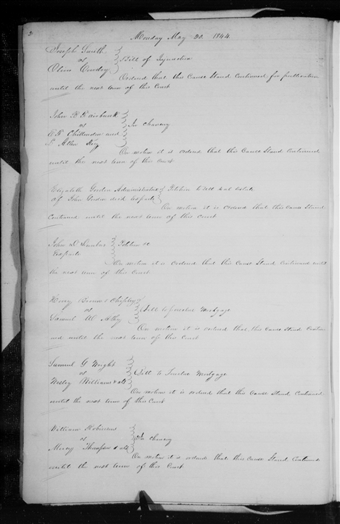 Monday May 20. 1844
Joseph Smith
vs Bill of Injunction
Ordered that this Cause Stand Continued for
until the next term of this Court
John W
vs In Chancery
C. R. Chittenden and
On motion it is ordered that this Cause Stand Continued
until the next term of this Court
Elizabeth Gordon Petition to sell real estate
of John Gordon decd Exparte
On motion it is ordered that this Cause Stand
Continued until the next term of this Court
John S. Petition to
Exparte
On motion it is ordered that this Cause Stand Continued until
the next term of this Court
Henry
vs Bill to foreclose Mortgage
Samuel W.
On motion it is ordered that this Cause Stand
until the next term of this Court
Samuel G Wright
vs Bill to foreclose Mortgage
Wesley Williams et al
On motion it is ordered that this Cause Stand Continued
until the next term of this Court
William Robinson
vs In Chancery
Thompson et al
On motion it is ordered that this Cause Stand Continued
until the next term of this Court